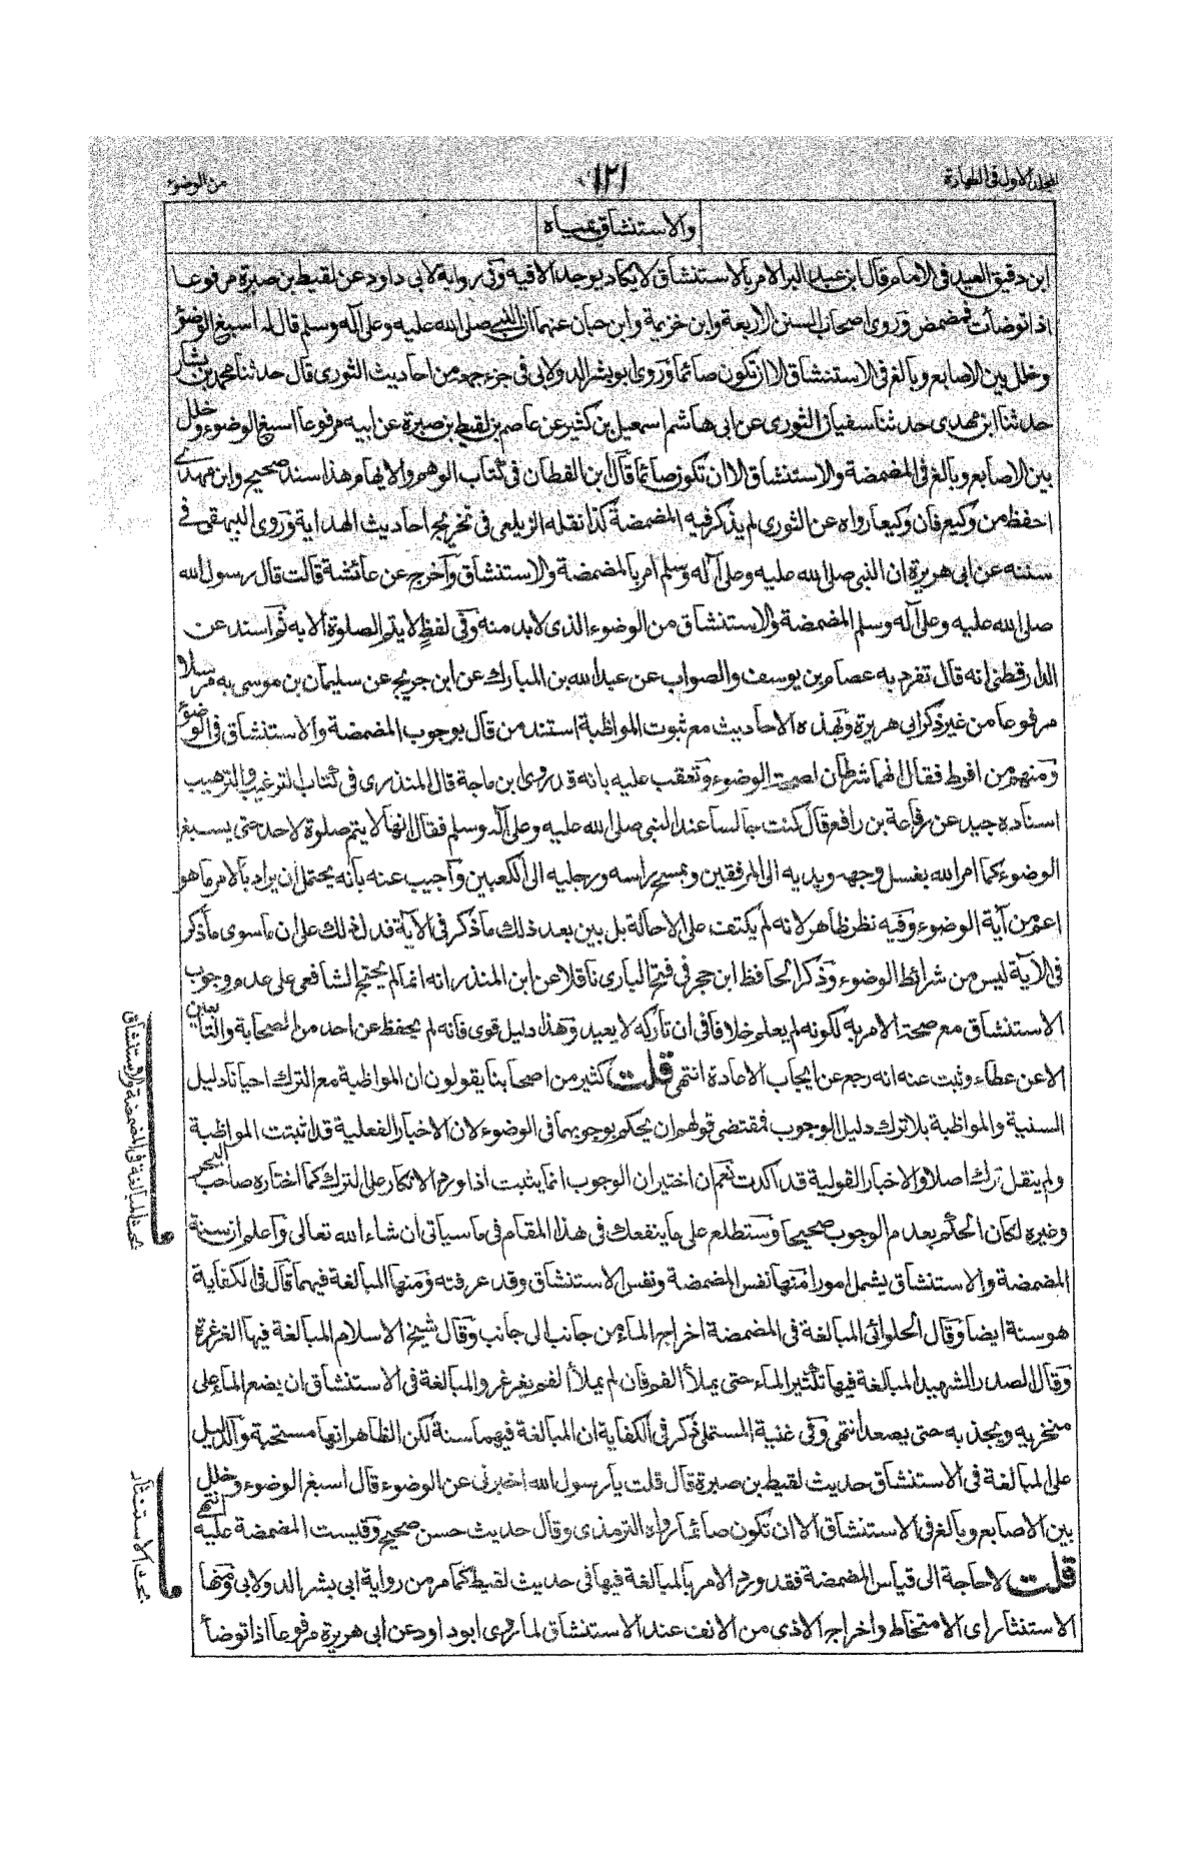 المجلد الاول فى الطهارة
١٢١
من الوضوء
والاستنشاق بمياه
ابن دقيق العيد فى الامام قال ابن عبد البر الامر بالاستنشاق لا يكاد يوجد الا فيه وفى رواية لابى داود عن لقيط بن صبرة مرفوعا
اذا توضأت فمضمض وروى اصحاب السنن الاربعة وابن خزيمة وابن حبان عنهما ان النبى صلى الله عليه وعلى آله وسلم قال له اسبغ الوضوء
وخلل بين الاصابع وبالغ فى الاستنشاق الا ان تكون صائما وروى ابو بشر الدولابى فى جزء جمعه من احاديث الثورى قال حدثنا محمد بن بشار
حدثنا ابن مهدى حدثنا سفيان الثورى عن ابى هاشم اسمعيل بن كثير عن عاصم بن لقيط بن صبرة عن ابيه مرفوعا اسبغ الوضوء وخلل
بين الاصابع وبالغ فى المضمضة والاستنشاق الا ان تكون صائما قال ابن القطان فى كتاب الوهم والايهام هذا سند صحيح وابن مهدى
احفظ من وكيع فان وكيعا رواه عن الثورى لم يذكر فيه المضمضة كذا نقله الزيلعى فى تخريج احاديث الهداية وروى البيهقى فى
سننه عن ابى هريرة ان النبى صلى الله عليه وعلى آله وسلم امر بالمضمضة والاستنشاق وآخرج عن عائشة قالت قال رسول الله
صلى الله عليه وعلى آله وسلم المضمضة والاستنشاق من الوضوء الذى لابد منه وفى لفظٍ لا يتم الصلوة الا به ثم اسند عن
الدارقطنى انه قال تفرد به عصام بن يوسف والصواب عن عبد الله بن المبارك عن ابن جريج عن سليمان بن موسى به مرسلا
مرفوعا من غير ذكر ابى هريرة وبهذه الاحاديث مع ثبوت المواظبة استند من قال بوجوب المضمضة والاستنشاق فى الوضوء
ومنهم من افرط فقال انهما شرطان لصحة الوضوء وتعقب عليه بانه قد روى ابن ماجة قال المنذرى فى كتاب الترغيب والترهيب
اسناده جيد عن رفاعة بن رافع قال كنت جالسا عند النبى صلى الله عليه وعلى آله وسلم فقال انها لا يتم صلوة لاحد حتى يسبغ
الوضوء كما امر الله بغسل وجهه ويديه الى المرفقين ويمسح براسه ورجليه الى الكعبين وآجيب عنه بأنه يحتمل ان يراد بالامر ما هو
اعم من آية الوضوء وفيه نظر ظاهر لانه لم يكتف على الاحالة بل بين بعد ذلك ما ذكر فى الآية فدل ذلك على ان ما سوى ما ذكر
فى الآية ليس من شرائط الوضوء وذكر الحافظ ابن حجر فى فتح البارى ناقلا عن ابن المنذر انه انما لم يحتج الشافعى على عدم وجوب
الاستنشاق مع صحة الامر به لكونه لم يعلم خلافا فى ان تاركه لا يعيد وهذا دليل قوى فانه لم يحفظ عن احد من الصحابة والتابعين
الا عن عطاء وثبت عنه انه رجع عن ايجاب الاعادة انتهى قلت كثير من اصحابنا يقولون ان المواظبة مع الترك احيانا دليل
السنية والمواظبة بلا ترك دليل الوجوب فمقتضى قولهم ان يحكم بوجوبهما فى الوضوء لان الاخبار الفعلية قد اثبتت المواظبة
ولم ينقل ترك اصلا والاخبار القولية قد اكدت نعم ان اختير ان الوجوب انما يثبت اذا ورد الانكار على الترك كما اختاره صاحب البحر
وغيره لكان الحكم بعدم الوجوب صحيحا وستطلع على ما ينفعك فى هذا المقام فى ما سياتى ان شاء الله تعالى وآعلم ان سنة
المضمضة والاستنشاق يشمل امورا منها نفس المضمضة ونفس الاستنشاق وقد عرفته ومنها المبالغة فيهما قال فى الكفاية
هو سنة ايضا وقال الحلوائى المبالغة فى المضمضة اخراج الماء من جانب الى جانب وقال شيخ الاسلام المبالغة فيها الغرغرة
وقال الصدر الشهيد المبالغة فيها تكثير الماء حتى يملأ الفم فان لم يملأ الفم يغرغر والمبالغة فى الاستنشاق ان يضع الماء على
منخريه ويجذبه حتى يصعد انتهى وفى غنية المستملى ذكر فى الكفاية ان المبالغة فيهما سنة لكن الظاهر انها مستحبة والدليل
على المبالغة فى الاستنشاق حديث لقيط بن صبرة قال قلت يا رسول الله اخبرنى عن الوضوء قال اسبغ الوضوء وخلل
بين الاصابع وبالغ فى الاستنشاق الا ان تكون صائما رواه الترمذى وقال حديث حسن صحيح وقيست المضمضة عليه انتهى
قلت لا حاجة الى قياس المضمضة فقد ورد الامر بالمبالغة فيها فى حديث لقيط كما مر من رواية ابى بشر الدولابى ومنها
الاستنثار اى الامتخاط واخراج الاذى من الانف عند الاستنشاق لما روى ابو داود عن ابى هريرة مرفوعا اذا توضأ
بحث المبالغة فى المضمضة والاستنشاق
بحث الاستنثار